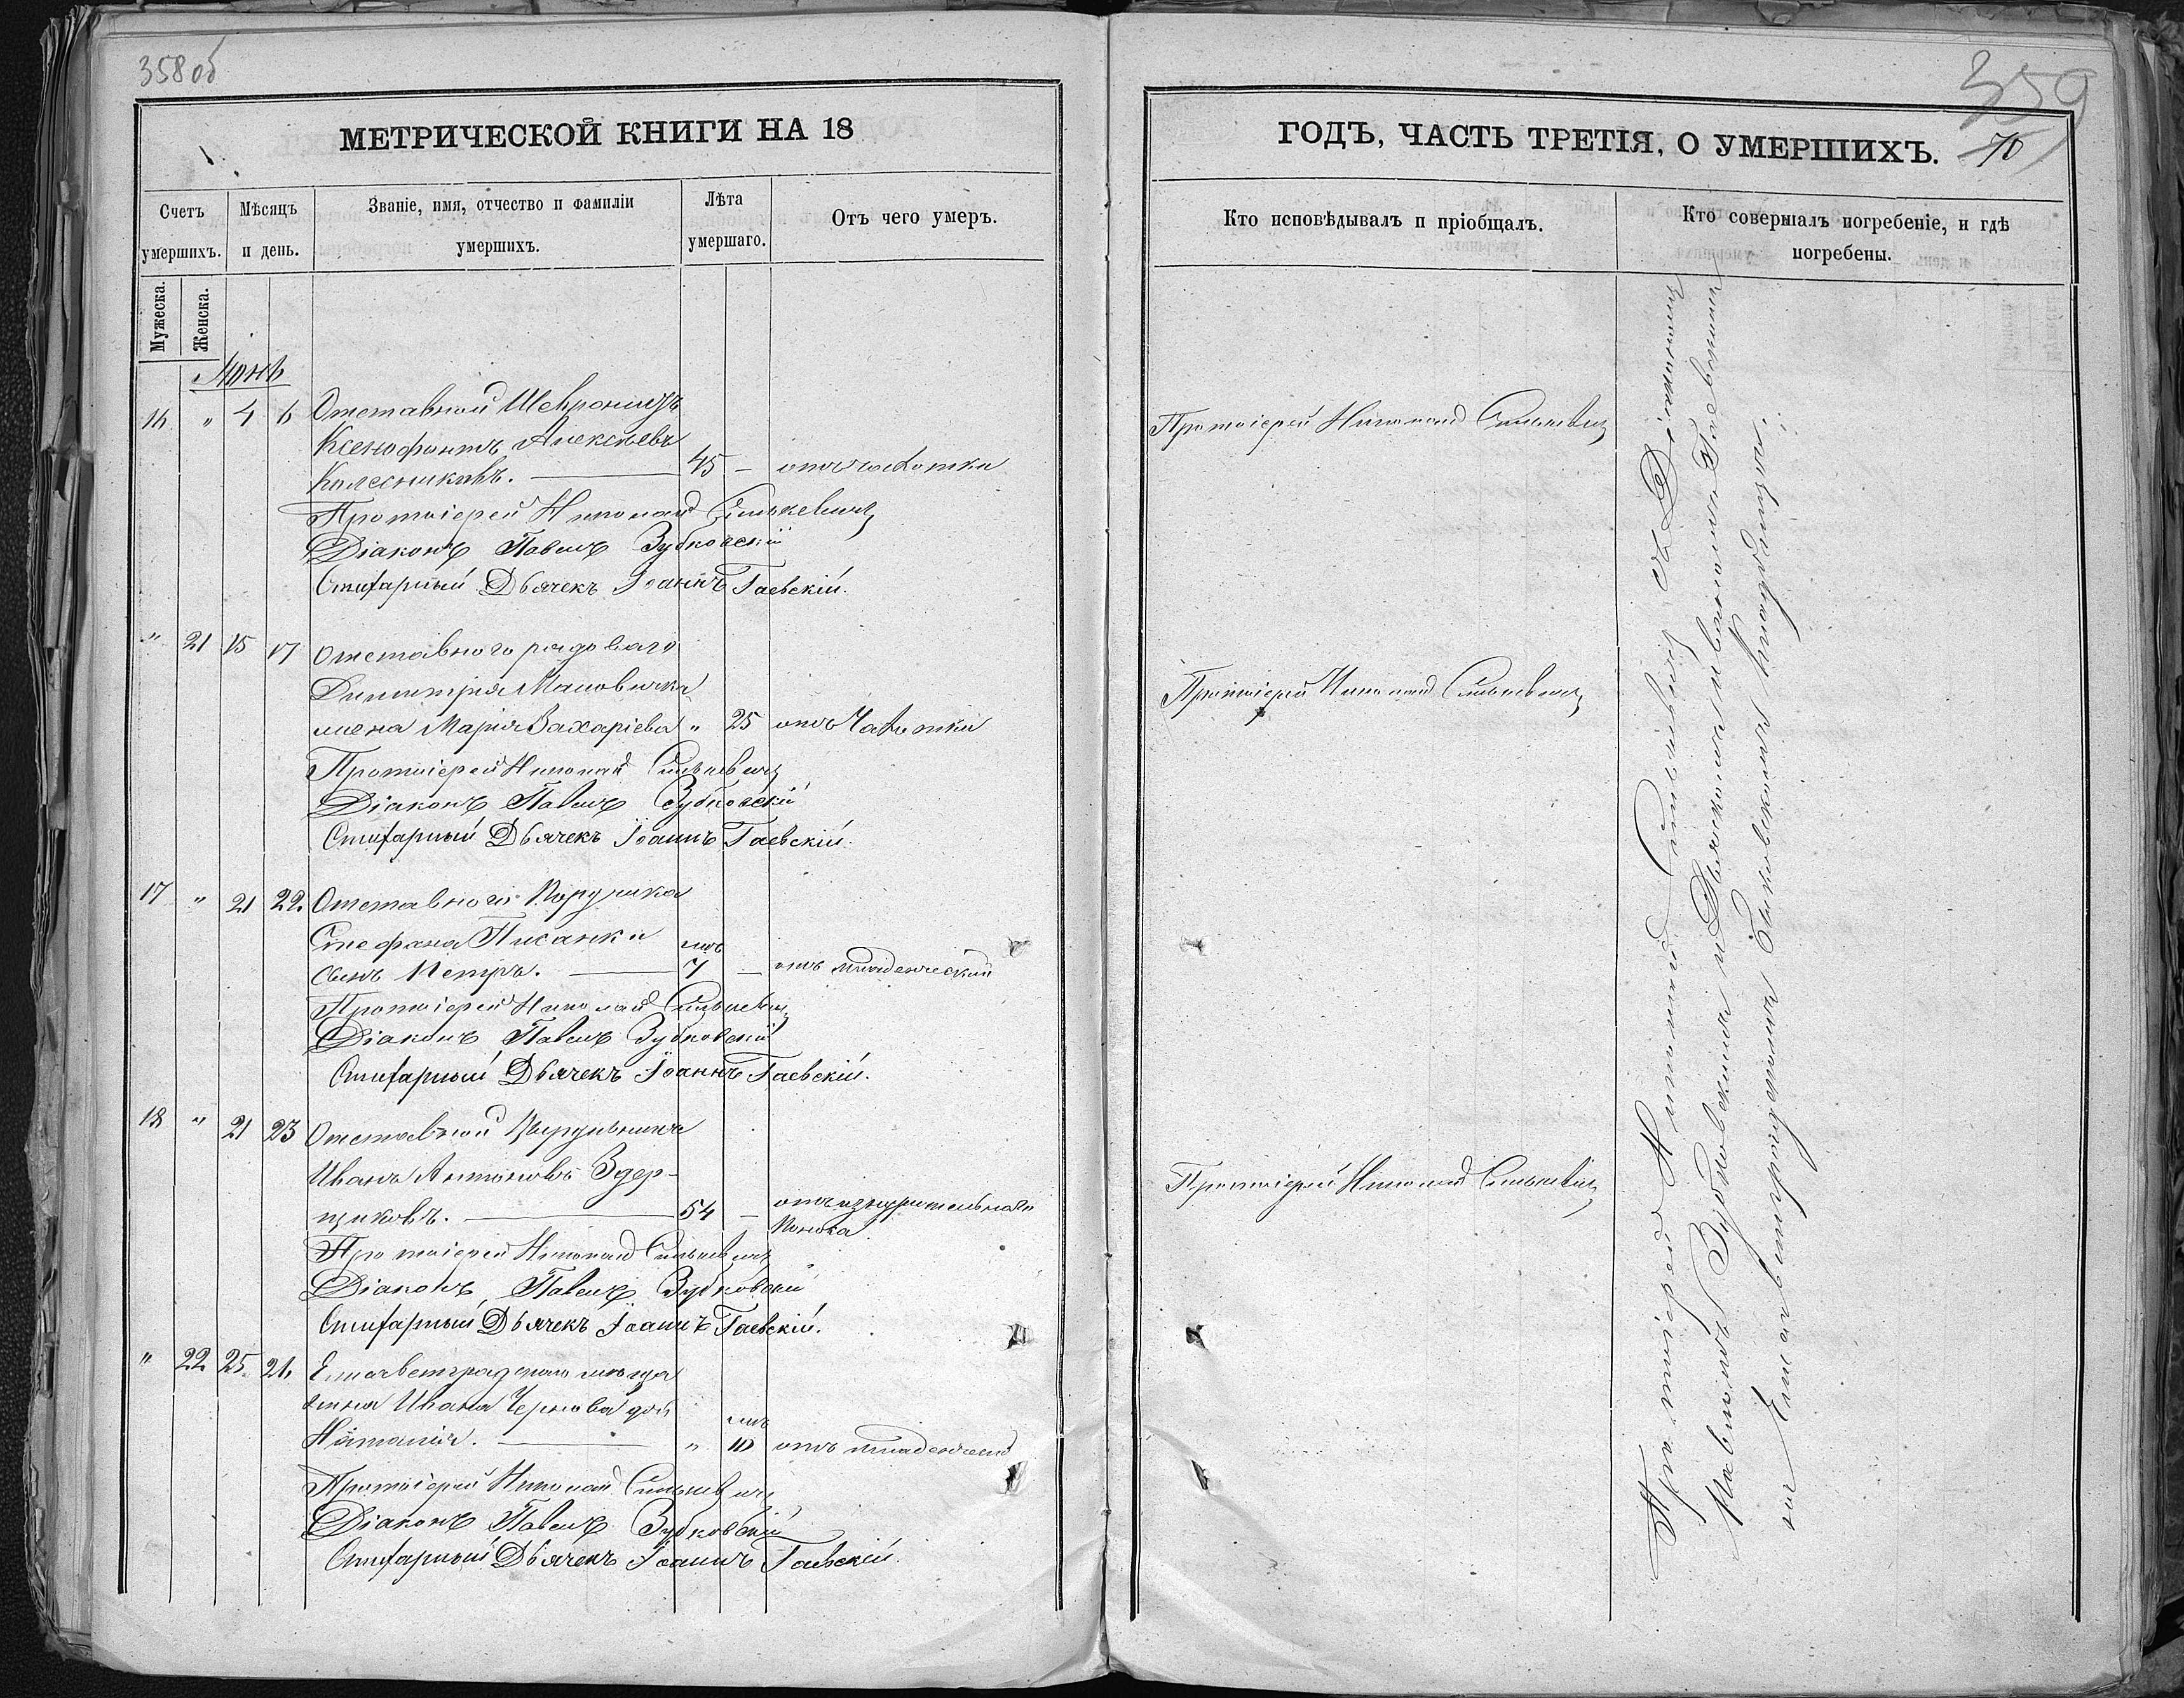 358 об
МЕТРИЧЕСКОЙ КНИГИ НА 18
Счетъ умершихъ.
Мѣсяцъ и день.
Званіе, имя, отчество и фамиліи умершихъ.
Лѣта умершаго.
Отъ чего умеръ.
Мужеска.
Женска.
Іюнь
16 " 4 6 Отставной Шевронистъ
Ксенофонтъ Алексѣевъ
Колесниковъ. — 45 — отъ чахотки
Протоіерей Николай Сулькевичъ
Діаконъ Павелъ Зубковскій
Стихарный Дьячекъ Іоаннъ Гаевскій.
" 21 15 17 Отставного рядоваго
Димитрія
жена Марія Захаріева " 25 отъ Чахотки
Протоіерей Николай
Діаконъ Павелъ Зубковскій
Стихарный Дьячекъ Іоаннъ Гаевскій.
17 " 21 22 Отставного Поручика
Стефана Писанки мѣс
сынъ Петръ. — 7 — отъ младенческой
Протоіерей Николай
Діаконъ Павелъ Зубковскій
Стихарный Дьячекъ Іоаннъ Гаевскій.
18 " 21 23 Отставной Цирульникъ
Иванъ Антоновъ
54 — отъ изнурительнаго
поноса
Протоіерей Николай
Діаконъ Павелъ Зубковскій
Стихарный Дьячекъ Іоаннъ Гаевскій.
" 22 25 26 Елисаветградскаго мѣща
нина Ивана Чернова дочь
Наталія. — " 10 отъ младенческой
Протоіерей Николай
Діаконъ Павелъ Зубковскій
Стихарный Дьячекъ Іоаннъ Гаевскій.
359
70
ГОДЪ, ЧАСТЬ ТРЕТІЯ, О УМЕРШИХЪ.
Кто исповѣдывалъ и пріобщалъ.
Кто совершалъ погребеніе, и гдѣ погребены.
Протоіерей Николай
Протоіерей Николай
Протоіерей Николай
Протоіерей Николай съ Діакономъ
Павломъ Зубковскимъ и Дьячкомъ Іоанномъ Гаевскимъ
на Елисаветградскомъ Быковскомъ кладбищѣ.